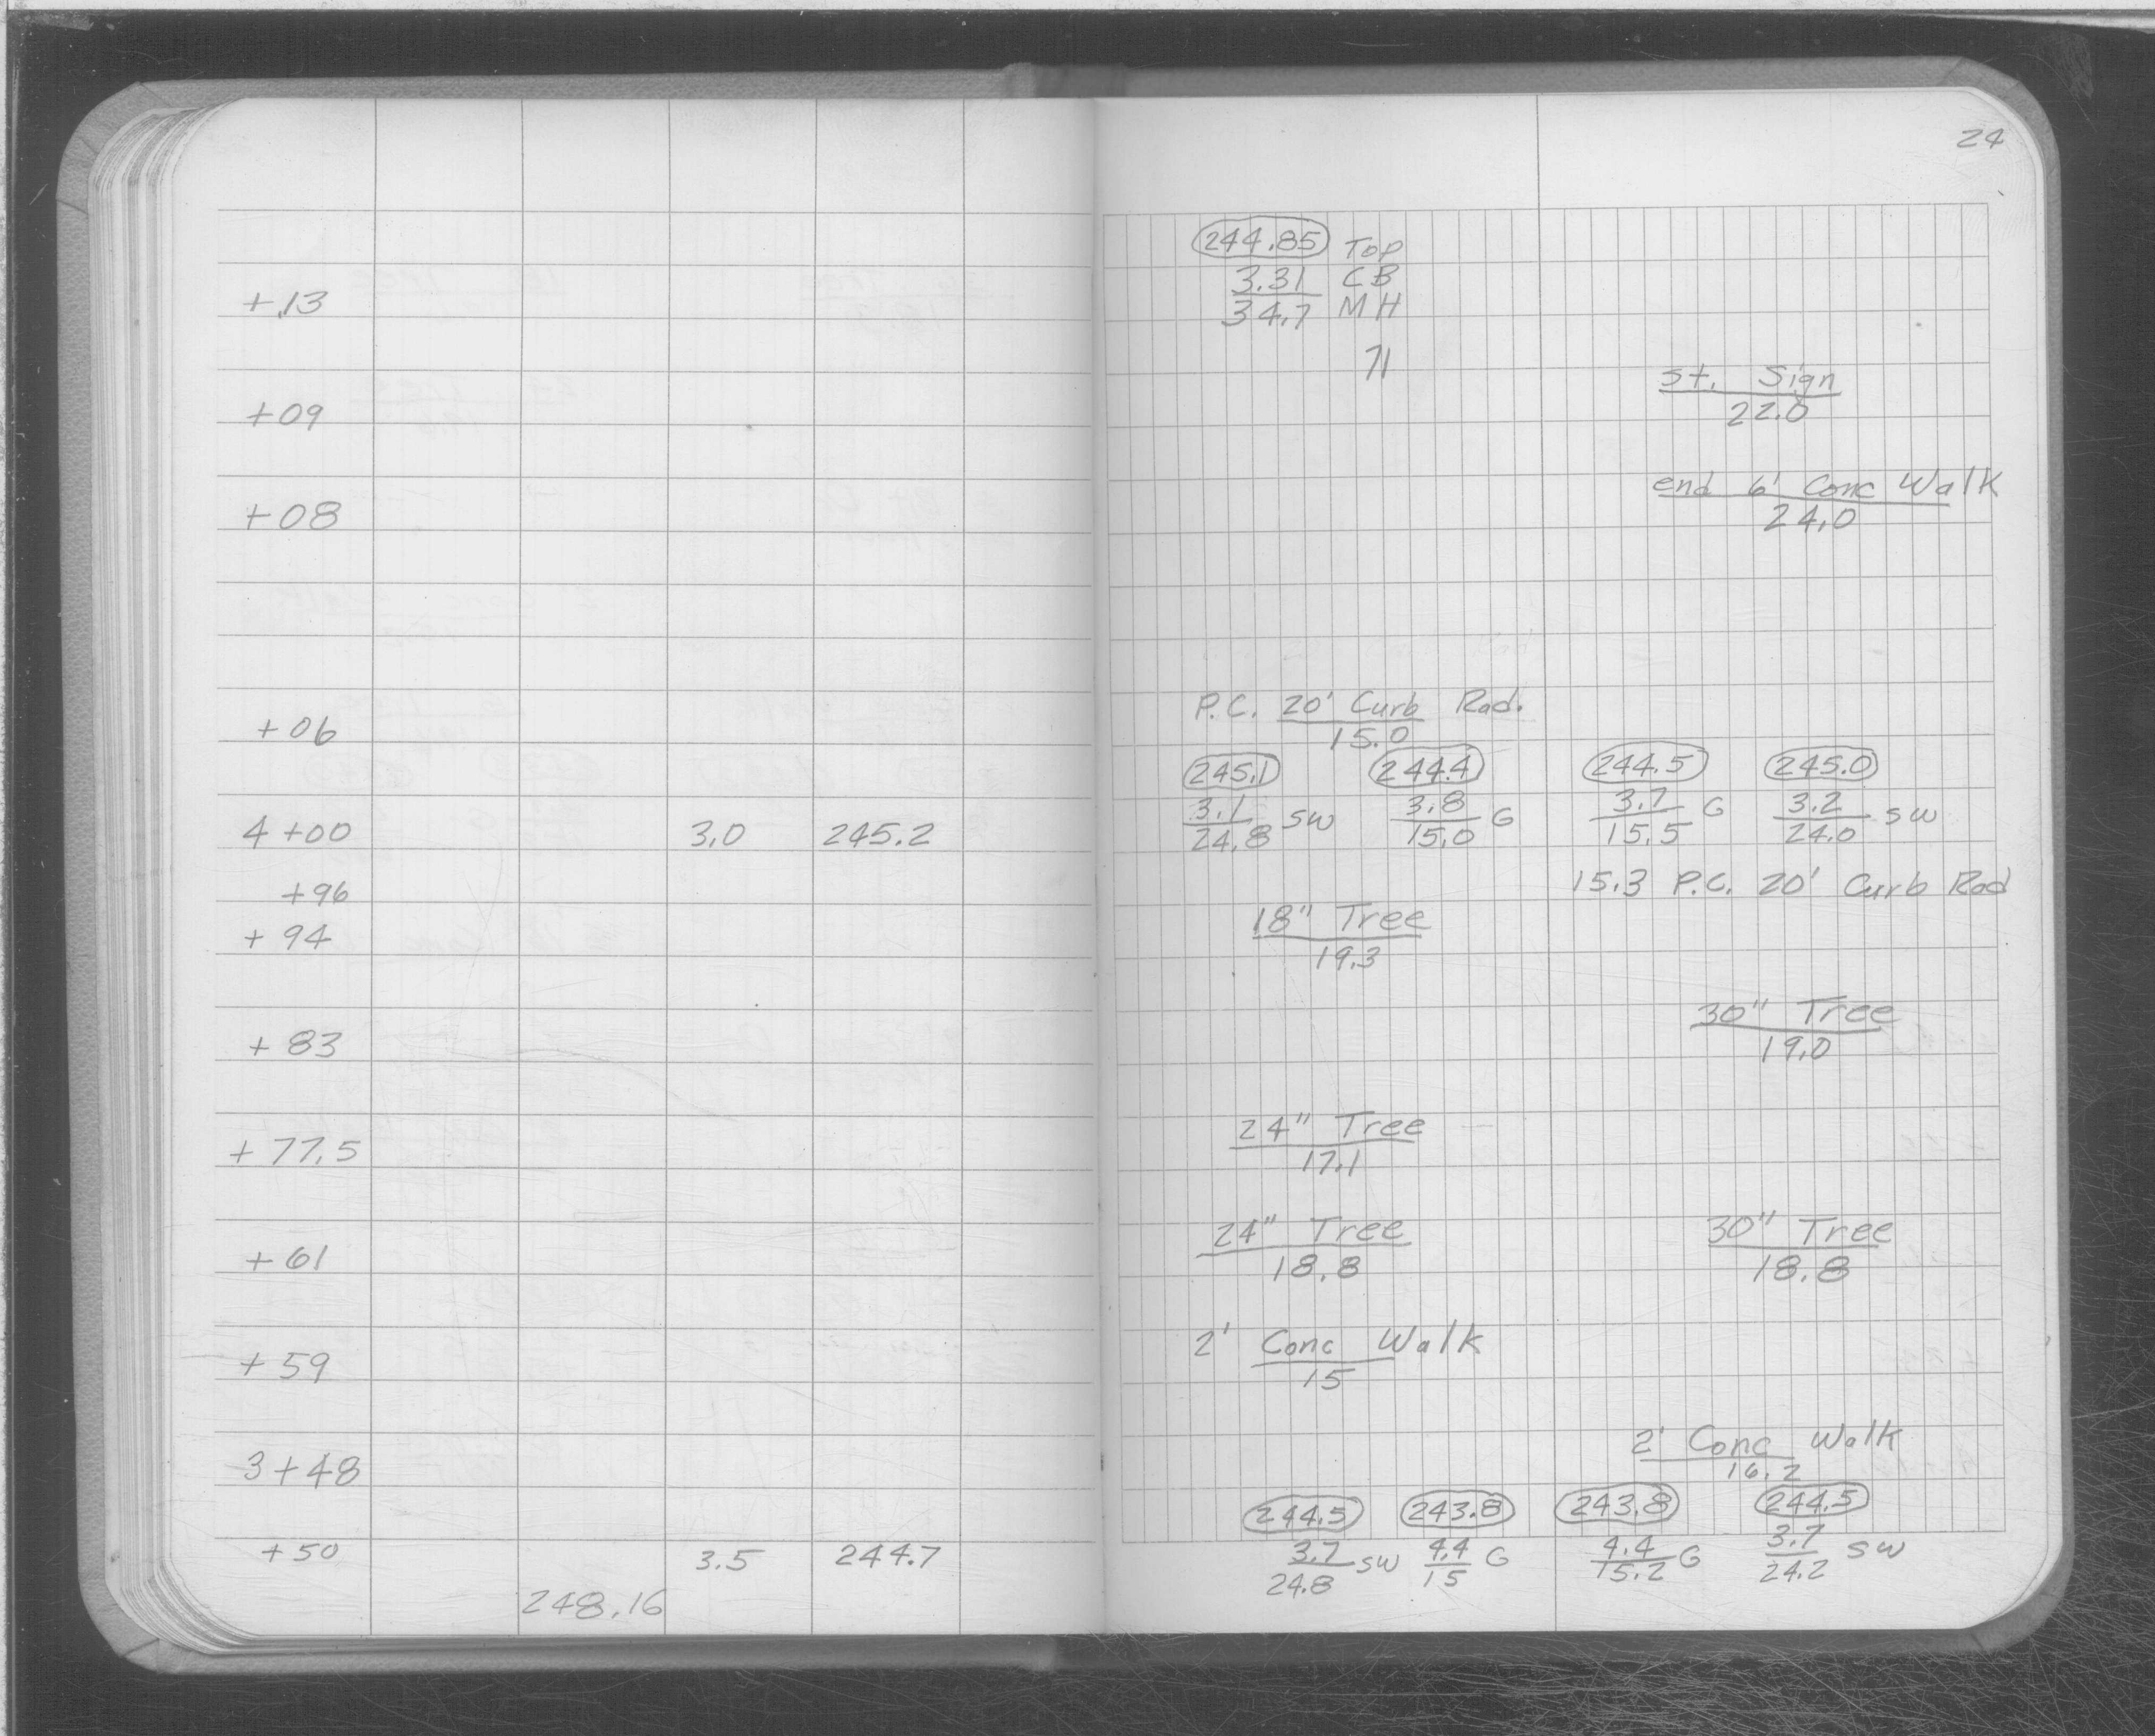 24
244.85 Top
3.31 CB
+13 34.7 MH
71
st. Sign
+09 22.0
end 6' Conc Walk
+08 24.0
P.C. 20' Curb Rad.
+06 15.0
245.1 244.4 244.5 245.0
3.1 SW 3.8 G 3.7 G 3.2 SW
4+00 3.0 245.2 24.8 15.0 15.5 24.0
+96 15.3 P.C. 20' Curb Rad
18" Tree
+94 19.3
30" Tree
+83 19.0
24" Tree
+77.5 17.1
24" Tree 30" Tree
+61 18.8 18.8
2' Conc Walk
+59 15
2' Conc Walk
3+48 16.2
244.5 243.8 243.8 244.5
+50 3.5 244.7 3.7 SW 4.4 G 4.4 G 3.7 SW
24.8 15 15.2 24.2
248.16